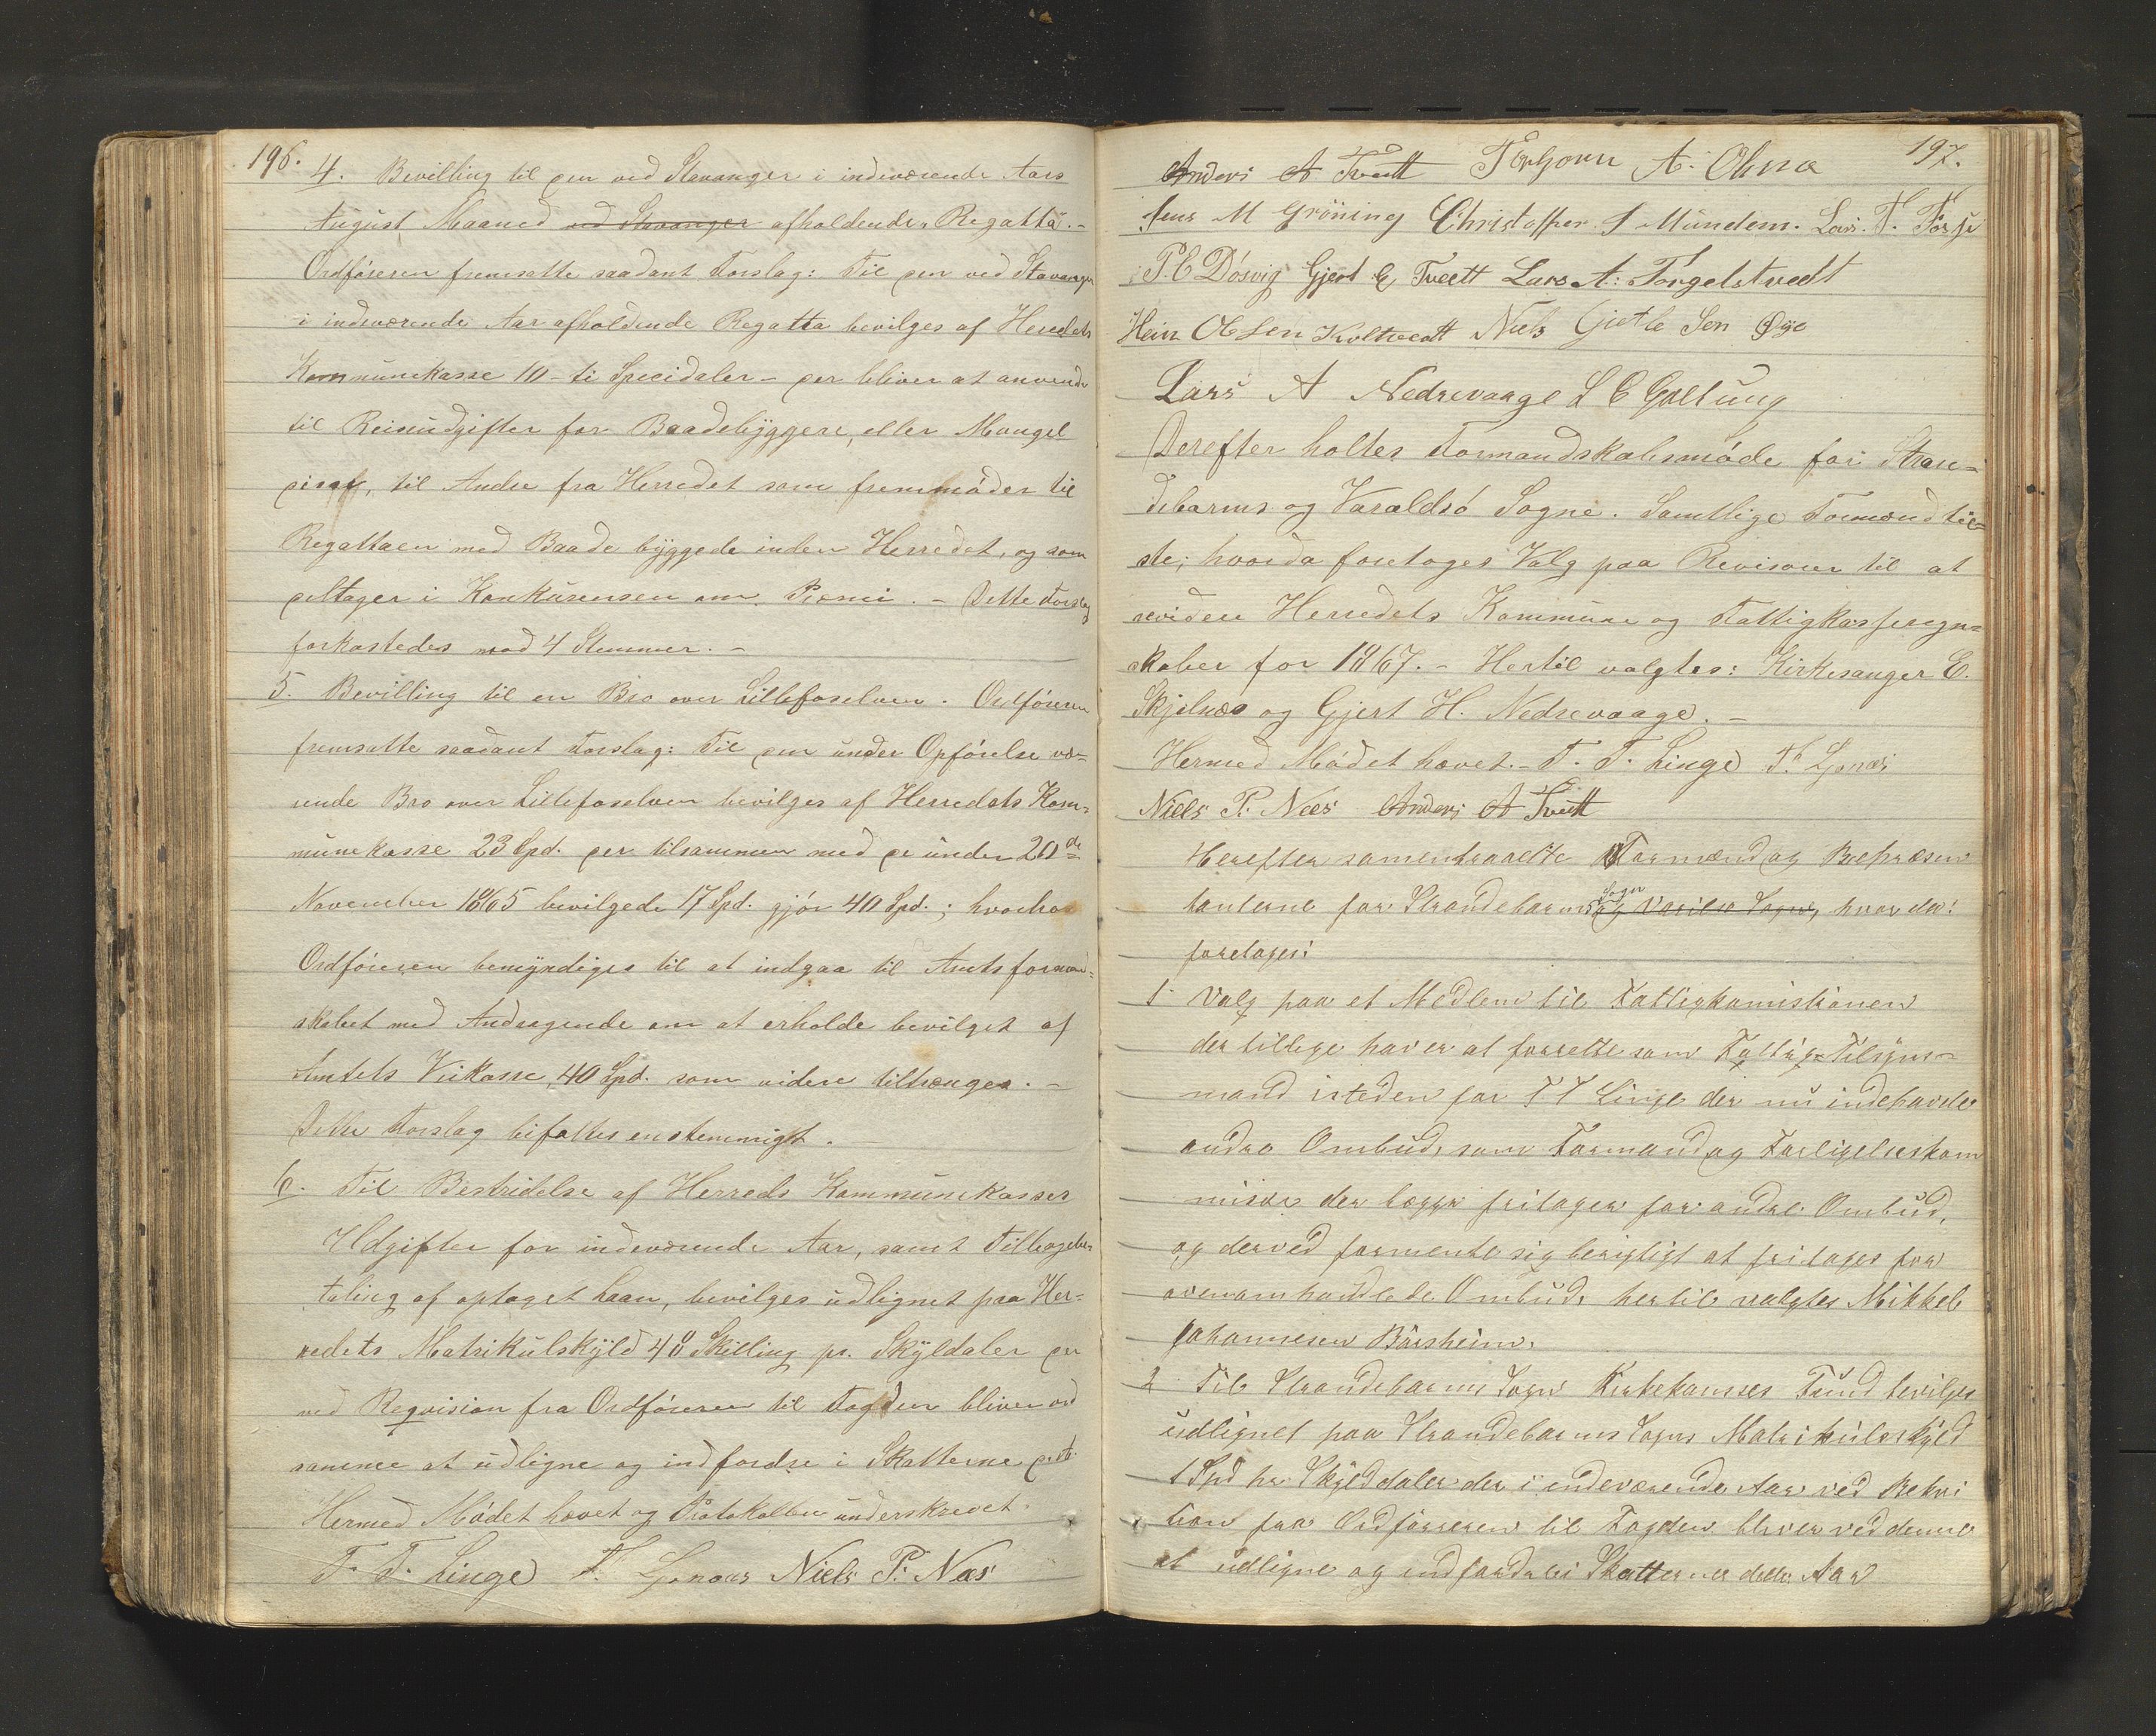 196.
4. Bevilling til den ved Stavanger i indeværende Aars
August Maaned ved Stavanger afholdende Regatta. -
Ordføreren fremsatte saadant Forslag: Til den ved Stavanger
i indeværende Aar afholdende Regatta bevilges af Herredets
Kommunekasse 10 - ti Specidaler - der bliver at anvende
til Reiseudgifter for Baadebyggere, eller Mangel
deraf, til Andre fra Herredet som fremmøder til
Regattaen med Baade byggede inden Herredet, og som
deltager i Konkurensen om Premi. - Dette Forslag
forkastedes mod 4 Stemmer. -
5. Bevilling til en Bro over Lillefoselven. Ordføreren
fremsatte saadant Forslag: Til den under Opførelse væ-
rende Bro over Lillefoselven bevilges af Herredets Kom-
munekasse 23 Spd. der tilsammen med de under 20de
November 1865 bevilgede 17 Spd. gjør 40 Spd.; hvorhos
Ordføreren bemyndiges til at indgaa til Amtsformand-
skabet med Andragende om at erholde bevilget af
Amtets Veikasse, 40 Spd. som videre tiltrænges. -
Dette Forslag bifaltes enstemmigt. -
6. Til Bestridelse af Herreds Kommunekasses
Udgifter for indeværende Aar, samt Tilbagebe-
taling af optaget Laan, bevilges udlignet paa Her-
redets Matrikulskyld 40 Skilling pr. Skyldaler der
ved Reqvision fra Ordføreren til Fogden bliver ved
samme at udligne og indfordre i Skatterne dest.
Hermed Mødet hævet og Protokollen underskrevet.
T. T. Linge T. Ljonaes Niels P. Næs
197.
Anders A Tveitt Torbjørn A. Olma
Jens M Grøning Christoffer J Mundem. Lars. T. Fosse
P. C Døsvig Gjert G Tveett Lars A. Torgelstvedt
Hein Olsen Koltveatt Niels Gietle Sen Øye
Lars A Nedrevaage L C Galtung
Derefter holtes Formandskabsmøde for Stran-
debarms og Varaldsø Sogne. Samtlige Formænd til-
ste; hvorda foretoges Valg paa Revisorer til at
revidere Herredets Kommune og Fattigkasseregn-
skaber for 1867. - Hertil valgtes: Kirkesanger E.
Skjelnæs og Gjert H. Nedrevaage. -
Hermed Mødet hævet. - T. T. Linge T. Ljonæs
Niels P. Næs Anders A Tveitt
Herefter samentraadte Formænd og Repræsen
tanterne for Strandebarms Sogn og Varilsø Sogne, hvor da:
foretoges:
1 Valg paa et Medlem til Fattigkomistionen
der tillige haver at forrette som Fattig-Tilsyns-
mand isteden for T T Linge der nu indehavde
andre Ombud, som Formand og Forligelseskom
misær der begge fritager for andre Ombud,
og derved formente sig berigtigt at fritages for
ovenomhandlede Ombud, hertil valgtes Mikkel
Johannesen Børsheim.
2 Til Strandebarms Sogn Kirkekasses Fund bevilges
udlignet paa Strandebarms Sogns Matrikulskyld
1 Spd pr Skylddaler der i indeværende Aar ved Rekvi
tion fra Ordføreren til Fogden bliver ved denne
at udligne og indfordre i Skatterne dette Aar